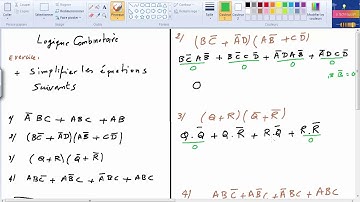 Logique Combinatoire
Exercice:
+ Simplifier les équations
Suivants
1) A̅BC + ABC + AB
2) (BC̅ + A̅D)(AB̅ + CD̅)
3) (Q+R)(Q̅+R̅)
4) ABC̅ + AB̅C + A̅BC + ABC
2) (BC̅ + A̅D)(AB̅ + CD̅)
BC̅AB̅ + BC̅CD̅ + A̅DAB̅ + A̅DCD̅
0 0 0 0
0
3) (Q+R)(Q̅+R̅)
Q.Q̅ + Q.R̅ + R.Q̅ + R.R̅
0 0
4) ABC̅ + AB̅C + A̅BC + ABC